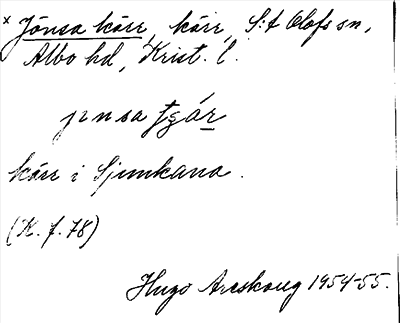 × Jönsa kärr, kärr, S:t Olofs sn,
Albo hd, Krist. l.
kärr i Sjunkana.
(K. f. 78)
Hugo Areskoug 1954-55.